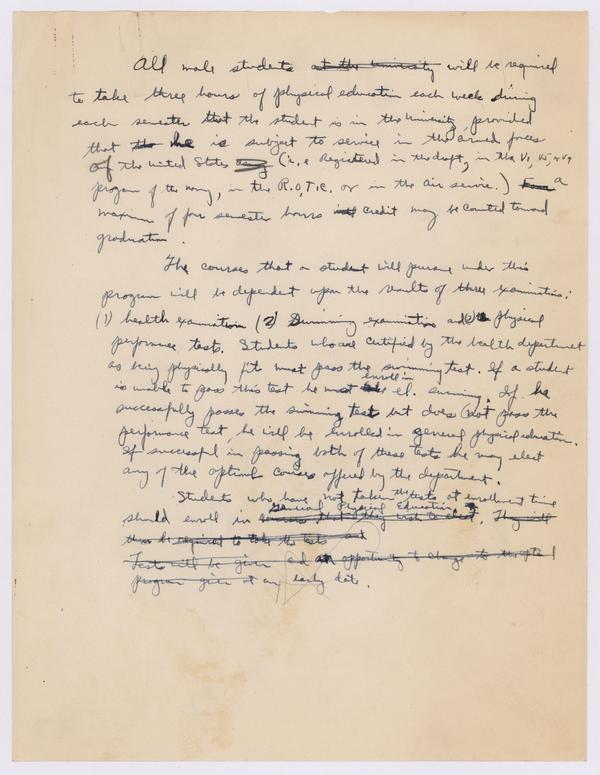 All male students at the University will be required
to take three hours of physical education each week during
each semester that the student is in the University, provided
that the he is subject to service in the armed forces
of the United States (i.e Registered in the draft, in the V1, V5, or V7
program of the navy, in the R.O.T.C. or in the air service.) a
maximum of four semester hours credit may be counted toward
graduation.
The courses that a student will pursue under this
program will be dependent upon the results of three examinations:
(1) health examination (2) Swimming examination and (3) physical
performance tests. Students who are certified by the health department
as being physically fit must pass the swimming test. If a student
is unable to pass this test he must enroll in el. swimming. If he
successfully passes the swimming test but does not pass the
performance test, he will be enrolled in general physical education.
If successful in passing both of these tests he may elect
any of the optional courses offered by the department.
Students who have not taken the tests at enrollment time
General Physical Education
should enroll in courses that they wish to elect. They will
then be required to take the tests and
Tests will be given and an opportunity to change to the optional
program given at an early date.